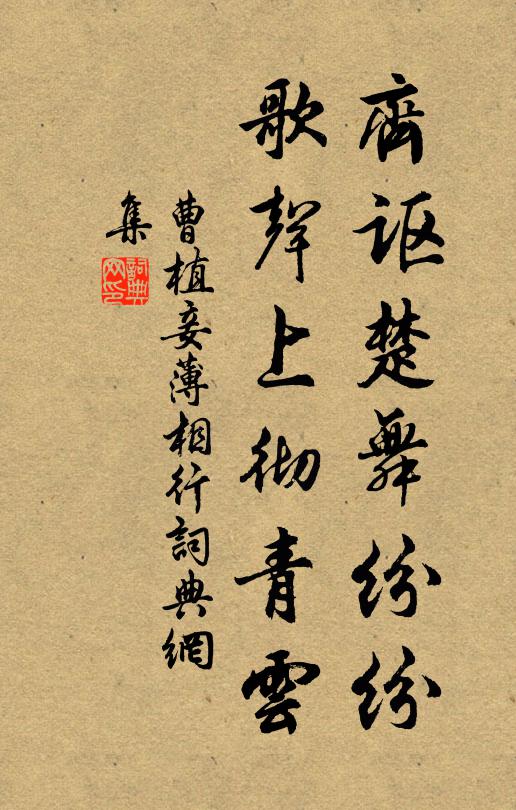 齊謳楚舞紛紛
歌聲上彻青雲
曹植妾薄相行詞典網
集
詞典
网印